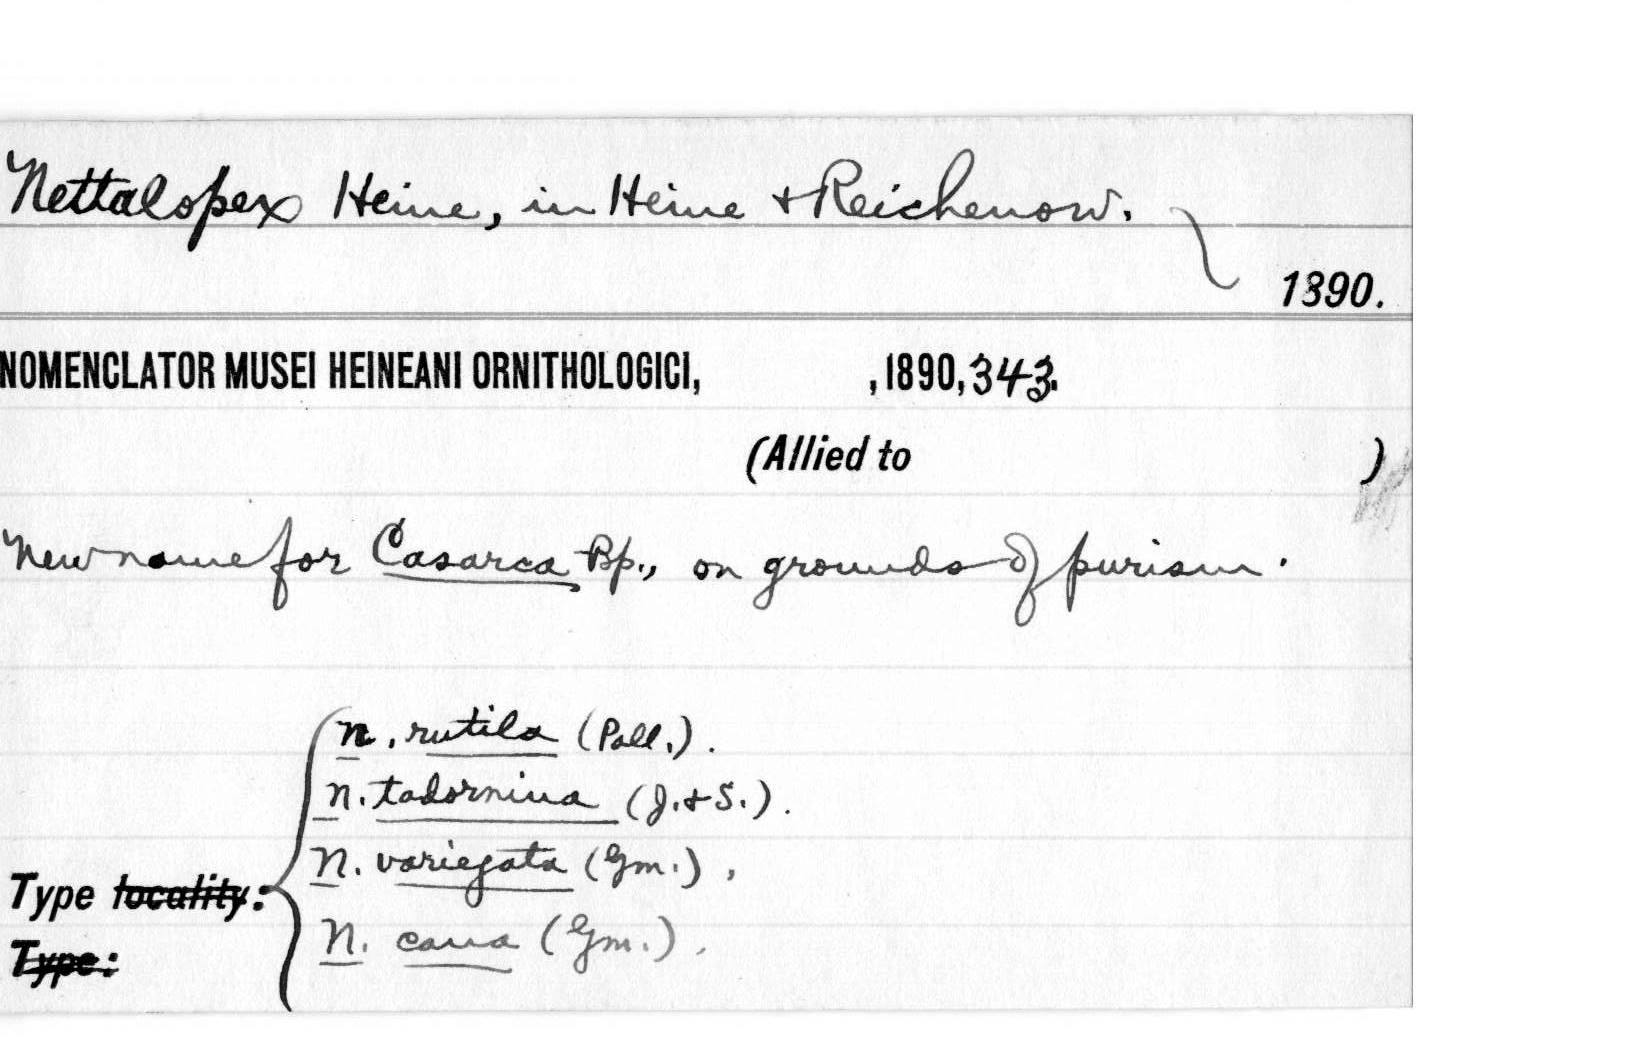 Nettalopex Heine, in Heine & Reichenow.
1890.
NOMENCLATOR MUSEI HEINEANI ORNITHOLOGICI, , 1890, 343.
(Allied to )
New name for Casarca Bp., on grounds of purism.
N. rutila (Pall.).
N. tadornina (J. & S.).
N. variegata (Gm.),
Type locality:
N. cana (Gm.),
Type: